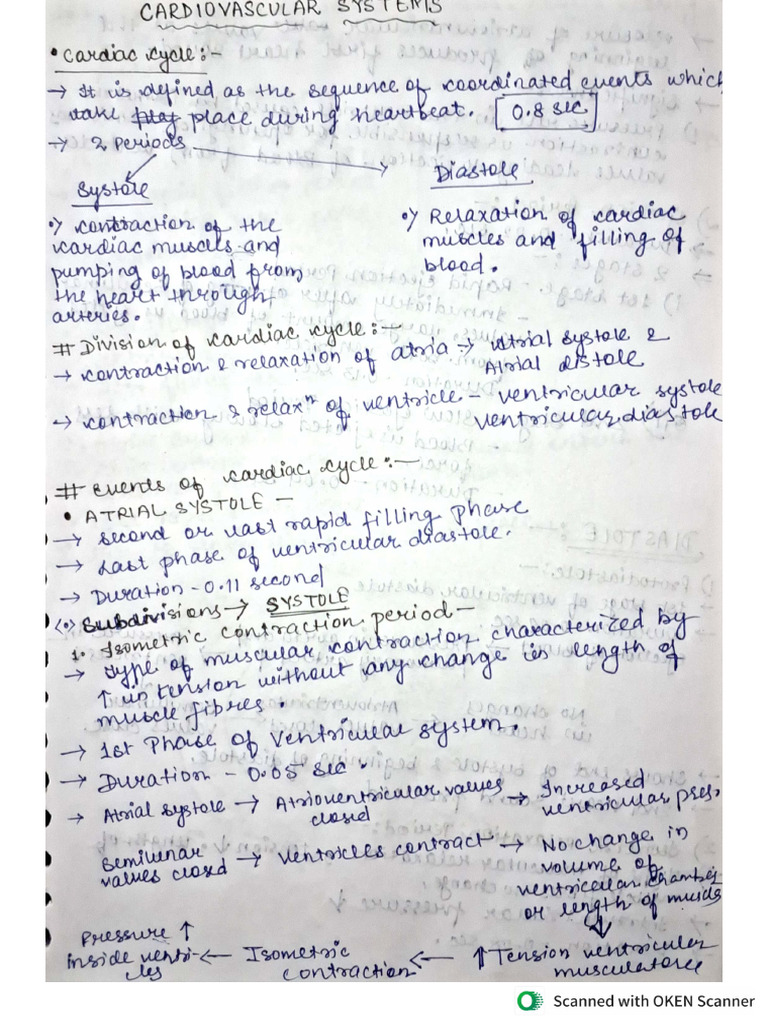 CARDIOVASCULAR SYSTEMS
• Cardiac cycle:-
→ It is defined as the sequence of coordinated events which
take place during heartbeat. 0.8 sec
→ 2 Periods
Systole
Diastole
•) contraction of the
cardiac muscles and
pumping of blood from
the heart through
arteries.
•) Relaxation of cardiac
muscles and filling of
blood.
# Division of cardiac cycle:-
→ contraction & relaxation of atria → Atrial systole &
Atrial distole
→ contraction & relaxⁿ of ventricle - ventricular systole
ventricular diastole
# events of cardiac cycle:-
• ATRIAL SYSTOLE -
→ second or last rapid filling phase
→ Last phase of ventricular diastole.
→ Duration - 0.11 second
<•) Subdivisions → SYSTOLE
1. Isometric contraction period -
→ type of muscular contraction characterized by
↑ in tension without any change is length of
muscle fibres.
→ 1st Phase of ventricular system.
→ Duration - 0.05 sec
→ Atrial systole → Atrioventricular values
closed → Increased
ventricular pres.
Semilunar
values closed → ventricles contract → No change in
volume of
ventricular chamber
or length of
↑ Tension ventricular
musculature
← Isometric
contraction
← Pressure ↑
inside ventri-
cles
Scanned with OKEN Scanner